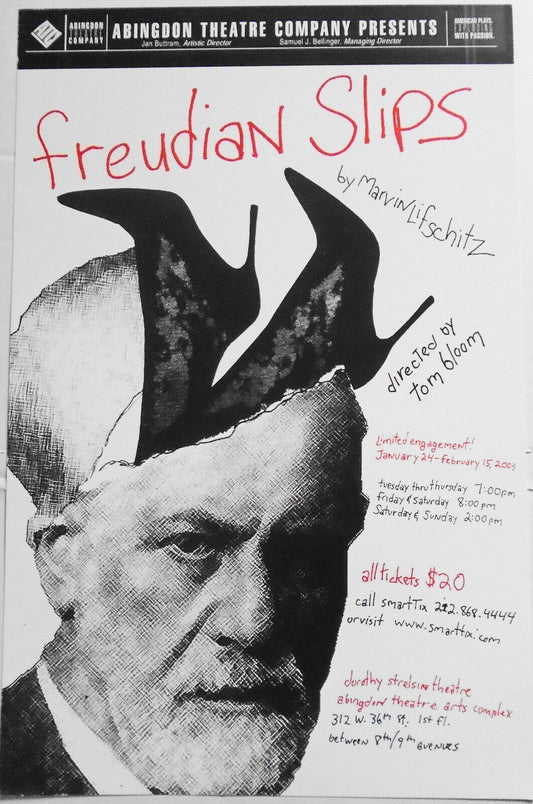 ABINGDON
THEATRE
COMPANY
ABINGDON THEATRE COMPANY PRESENTS
Jan Buttram, Artistic Director
Samuel J. Bellinger, Managing Director
AMERICAN PLAYS.
WITH PASSION.
freudian Slips
by Marvin Lifschitz
directed by
tom bloom
Limited engagement!
January 24-february 15, 2009
tuesday thru thursday 7:00pm
friday & saturday 8:00pm
Saturday & Sunday 2:00pm
all tickets $20
call smartTix 212.868.4444
or visit www.smarttix.com
dorothy strelsin theatre
abingdon theatre arts complex
312 W. 36th St. 1st fl.
between 8th/9th avenues